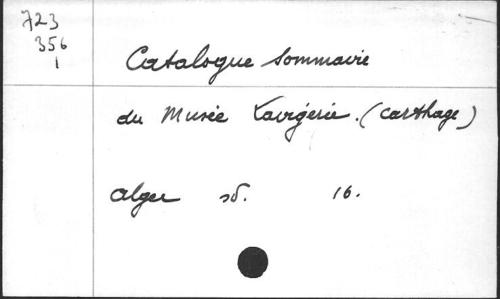 723
356
1
Catalogue Sommaire
du Musée Lavigerie. (Carthage)
Alger sd. 16.